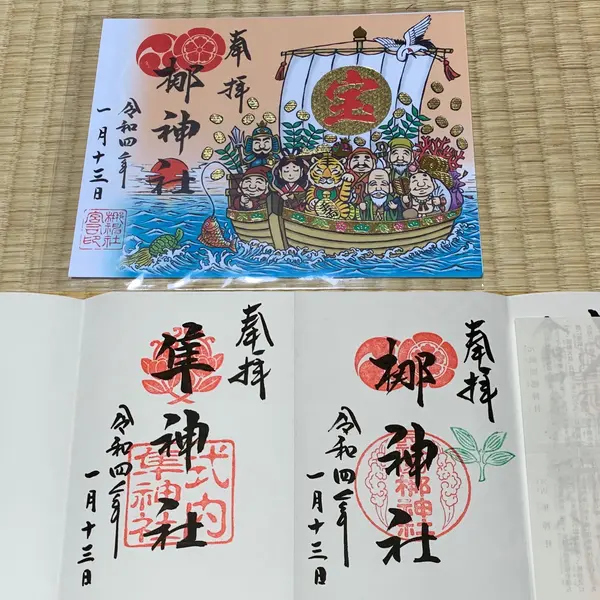 奉拝
梛神社
令和四年
一月十三日
宝
梛神社
宮司印
奉拝
梛神社
令和四年
一月十三日
梛神社
奉拝
隼神社
令和四年
一月十三日
式内
隼神社